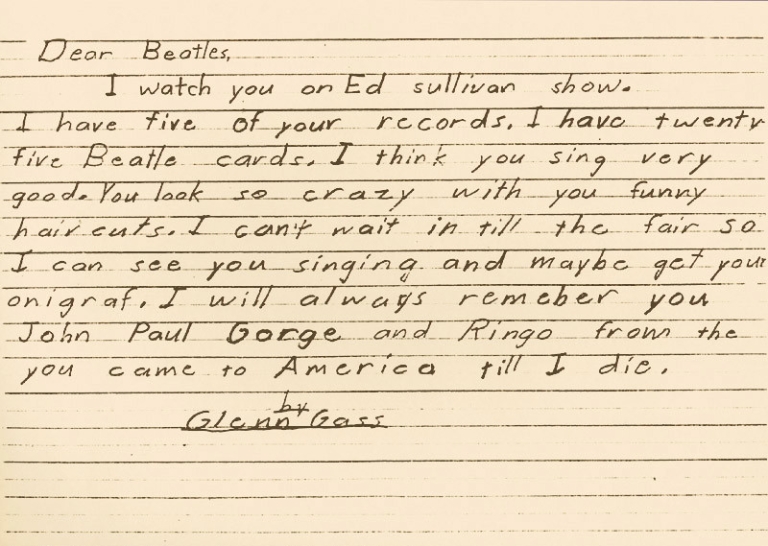 Dear Beatles,
I watch you on Ed sullivan show.
I have five of your records. I have twenty
five Beatle cards. I think you sing very
good. You look so crazy with you funny
hair cuts. I can't wait in till the fair so
I can see you singing and maybe get your
onigraf. I will always remeber you
John Paul Gorge and Ringo from the
you came to America till I die.
by
Glenn Gass